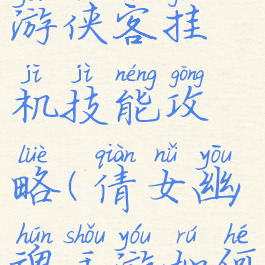 游侠客挂
jì jì néng gōng
机技能攻
lüè qiàn nǚ yōu
略(倩女幽
hún shǒu yóu rú hé
魂手游如何